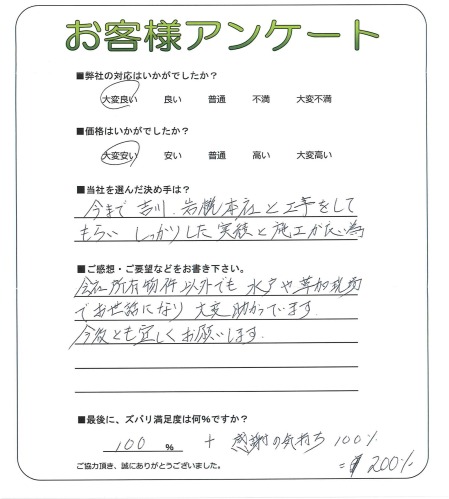 お客様アンケート
■弊社の対応はいかがでしたか?
大変良い 良い 普通 不満 大変不満
■価格はいかがでしたか?
大変安い 安い 普通 高い 大変高い
■当社を選んだ決め手は?
今まで 吉川、岩槻本社と工事をして
もらい しっかりした実績と施工がよい為
■ご感想・ご要望などをお書き下さい。
会社所有物件以外でも 水戸や草加
でお世話になり 大変助かっています。
今後とも宜しくお願いします。
■最後に、ズバリ満足度は何%ですか?
100 % + 感謝の気持ち 100%
= 200%
ご協力頂き、誠にありがとうございました。